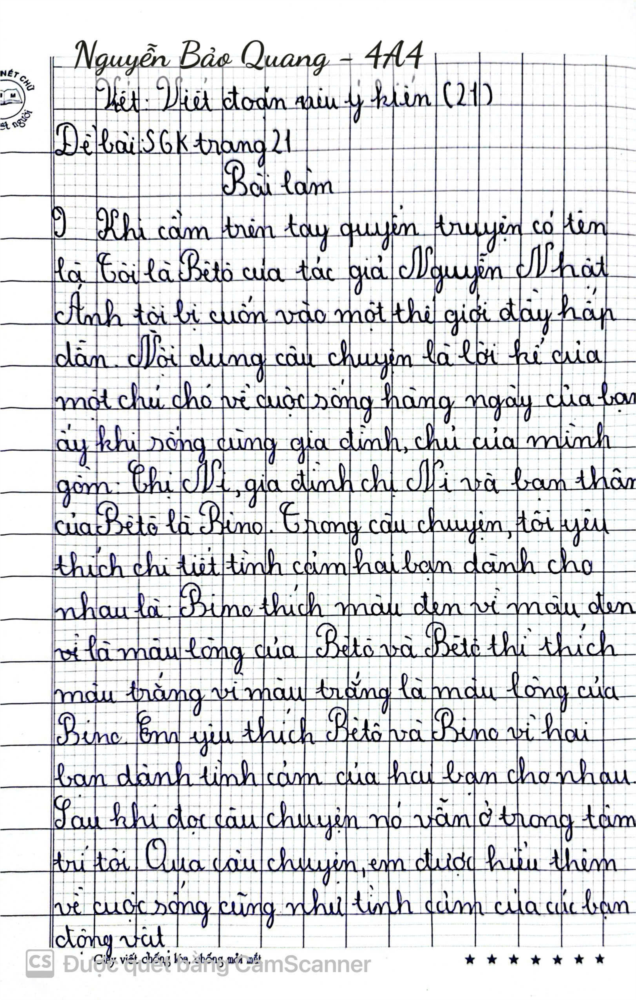 Nguyễn Bảo Quang - 4A4
NÉT CHỮ
Viết: Viết đoạn nêu ý kiến (21)
Đề bài: SGK trang 21
Bài làm
Khi cầm trên tay quyển truyện có tên
là Tôi là Bêtô của tác giả Nguyễn Nhật
Ánh tôi bị cuốn vào một thế giới đầy hấp
dẫn. Nội dung câu chuyện là lời kể của
một chú chó về cuộc sống hàng ngày của bạn
ấy khi sống cùng gia đình, chủ của mình
gồm: Chị Ni, gia đình chị Ni và bạn thân
của Bêtô là Bino. Trong câu chuyện, tôi yêu
thích chi tiết tình cảm hai bạn dành cho
nhau là: Bino thích màu đen vì màu đen
là màu lông của Bêtô và Bêtô thì thích
màu trắng vì màu trắng là màu lông của
Bino. Em yêu thích Bêtô và Bino vì hai
bạn dành tình cảm của hai bạn cho nhau.
Sau khi đọc câu chuyện nó vẫn ở trong tâm
trí tôi. Qua câu chuyện, em được hiểu thêm
về cuộc sống cũng như tình cảm của các bạn
động vật
Giấy viết chống lóa, chống mỏi mắt
CS Được quét bằng CamScanner